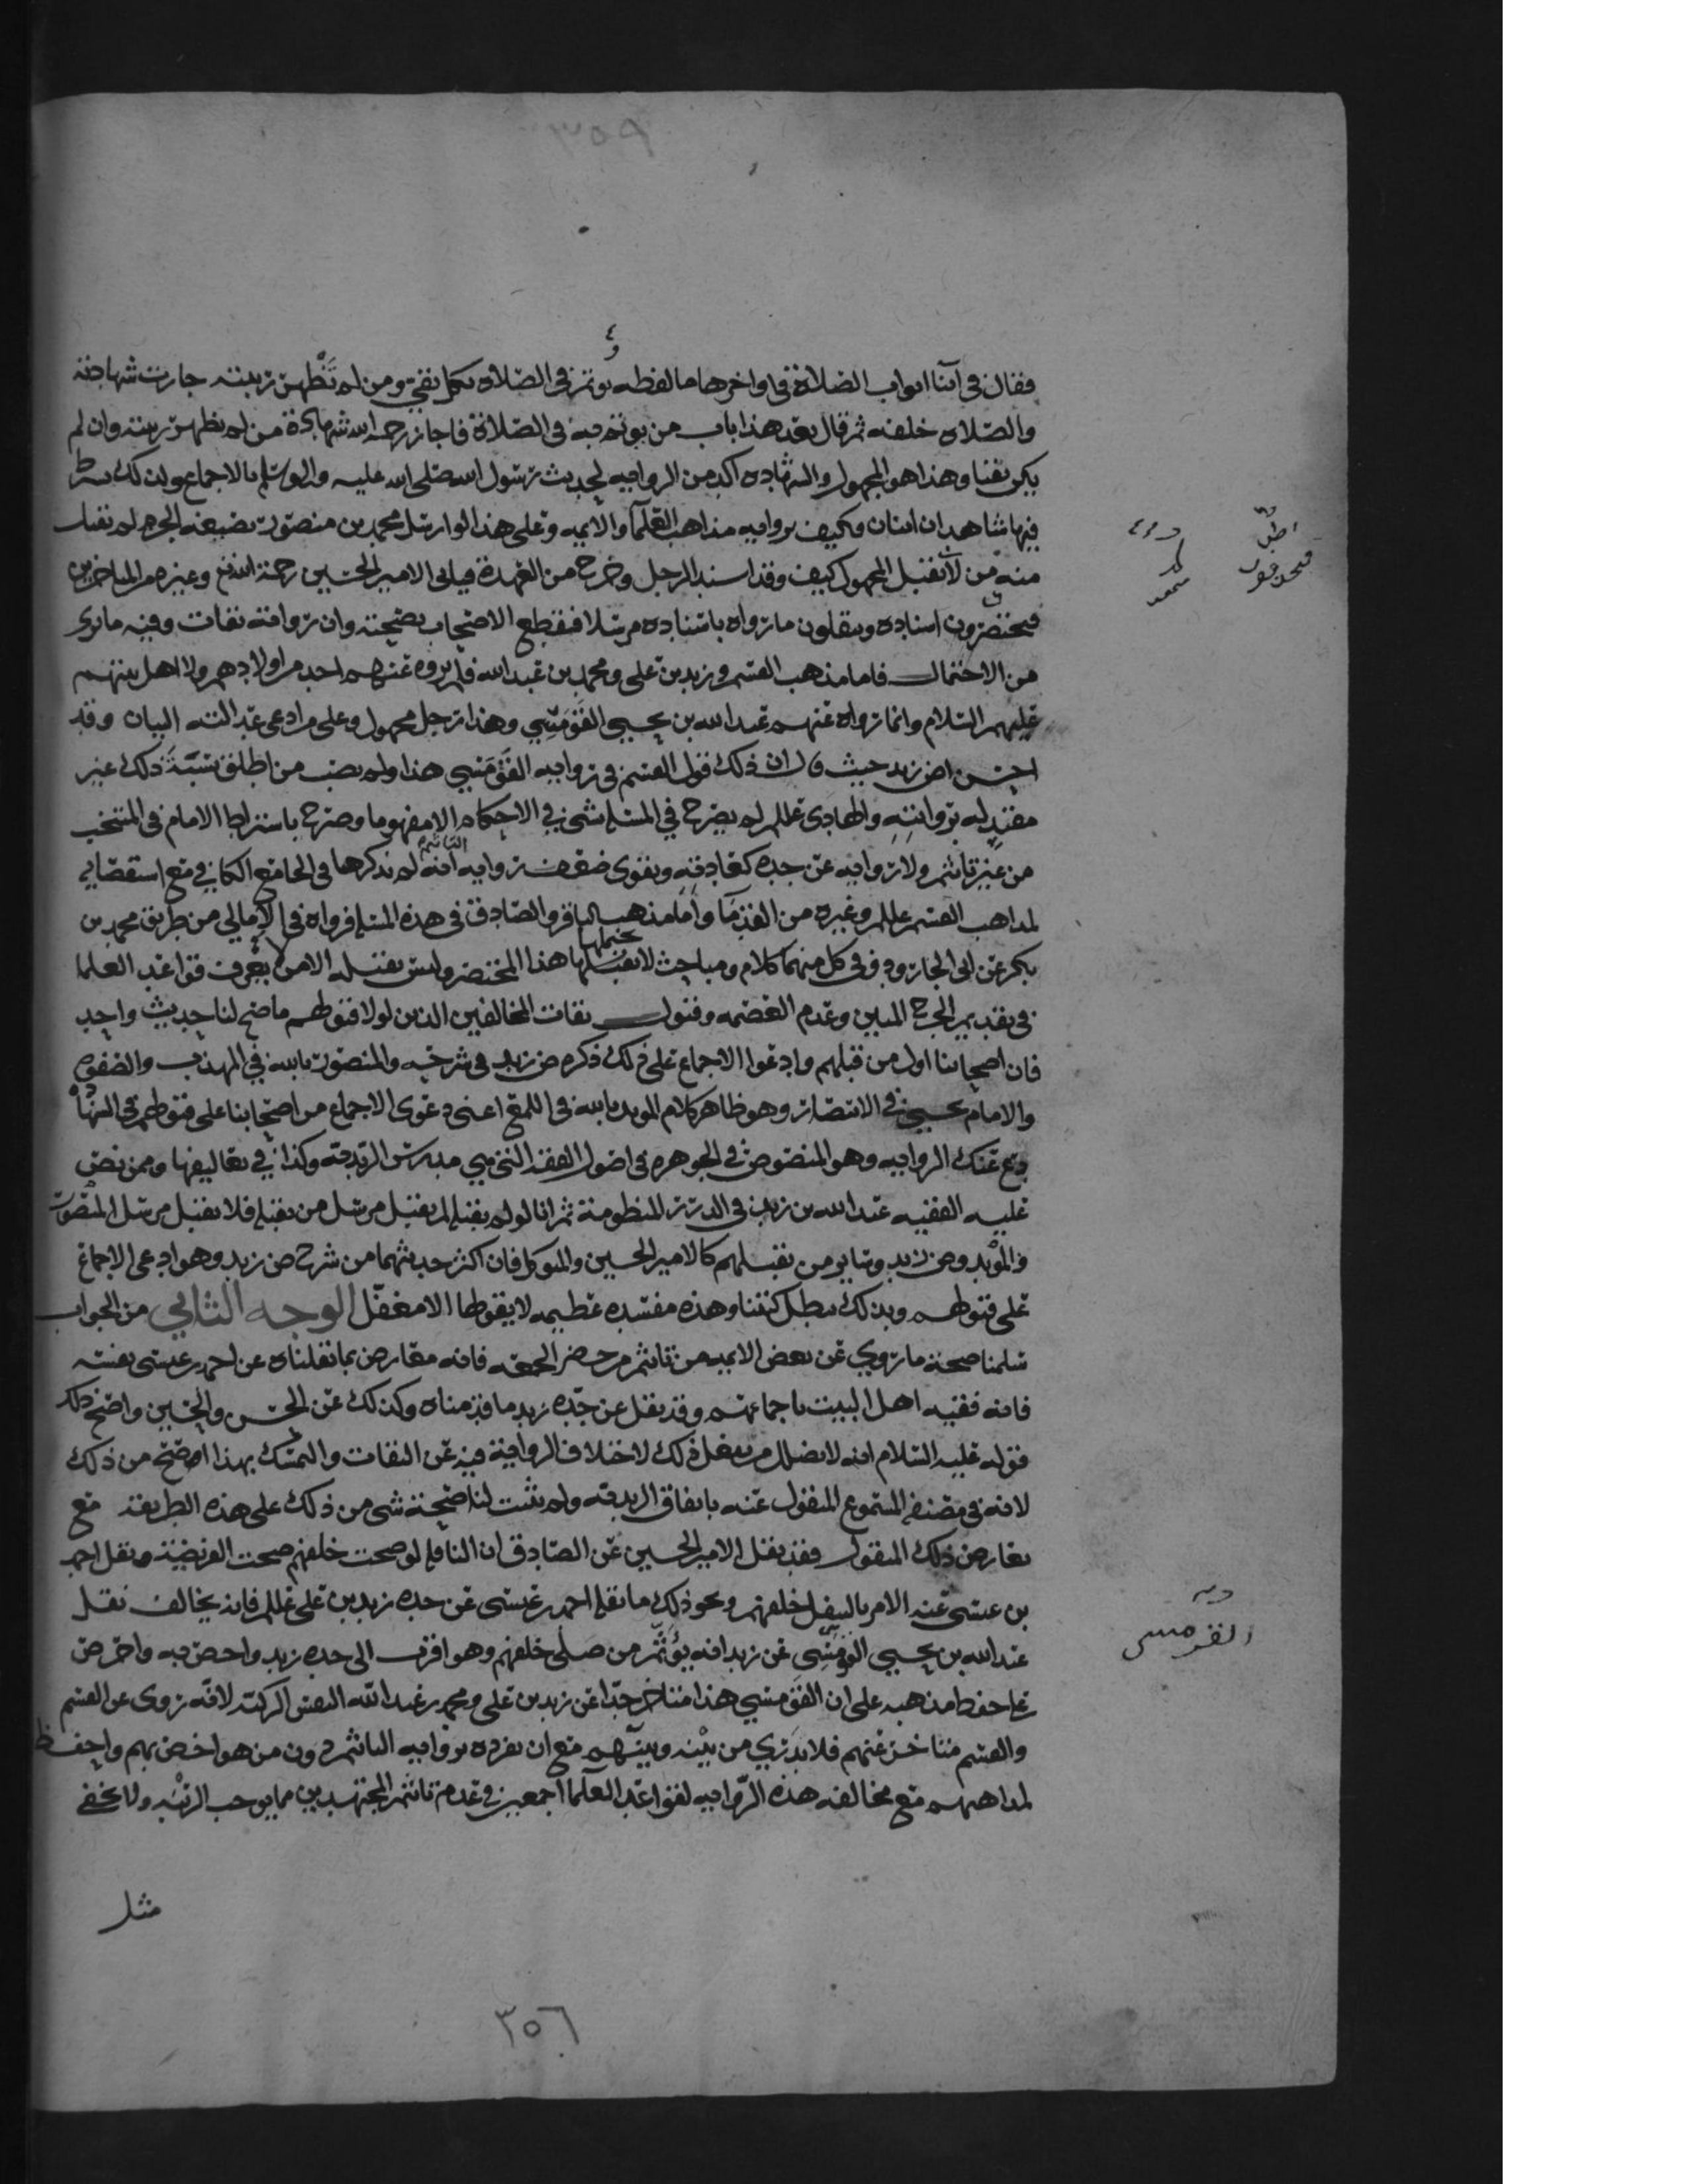 ٣٥٩
فقال في اثنا ابواب الصلاة في اواخرها ما لفظه يؤتم في الصلاة بكل تقي ومن لم تظهر ريبته جازت شهادته
والصلاه خلفه ثم قال بعد هذا باب من يؤتم به في الصلاة فاجاز رحمه الله شهادة من لم يظهر ريبته وان لم
يكن تقيا وهذا هو المجهول والشهاده اكد من الروايه لحديث رسول الله صلى الله عليه واله وسلم بالاجماع ولذلك شرط
فيها شاهدان اثنان وكيف بروايه مذاهب العلما والايمه وعلى هذا لو ارسل محمد بن منصور بصيغه الجزم لم تقبل
منه من لا يقبل المجهول كيف وقد اسند الرجل وخرج من العهدة فياتي الامير الحسين رحمة الله وغيره من المتاخرين
فيختصرون اسناده وينقلون ما رواه باسناده مرسلا فيقطع الاصحاب بصحته وان رواته ثقات وفيه ما ترى
من الاحتمال فاما مذهب القسم وزيد بن علي ومحمد بن عبد الله فلم يروه عنهم احد من اولادهم ولا اهل بيتهم
عليهم السلام وانما رواه عنهم عبد الله بن يحيى القومسي وهذا رجل مجهول وعلى من ادعى عدالته البيان وقد
احسن ض زيد حيث قال ان ذلك قول القسم في روايه القومسي هذا ولم يصب من اطلق نسبة ذلك غير
مقيد له بروايته والهادي علم لم يصرح في المسلة بشي في الاحكام الا مفهوما وصرح باشتراط الامام في المنتخب
من غير تاثيم ولا روايه عن جده كعادته ويقوي ضعف روايه التاثيم انه لم يذكرها في الجامع الكافي مع استقصايه
لمذاهب القسم علم وغيره من القدما واما مذهب الباقر والصادق في هذه المسلة فرواه في الامالي من طريق محمد بن
بكر عن ابي الجارود وفي كل منهما كلام ومباحث لا يحتملها هذا المختصر وليس يقبله الا من لا يعرف قواعد العلما
في تقديم الجرح المبين وعدم العصمه وقبول ثقات المخالفين الذين لولا قبولهم ما صح لنا حديث واحد
فان اصحابنا اول من قبلهم وادعوا الاجماع على ذلك ذكره ض زيد في شرحه والمنصور بالله في المهذب والصفوه
والامام يحيى في الانتصار وهو ظاهر كلام المويد بالله في اللمع اعني دعوى الاجماع من اصحابنا على قبولهم في الشهادة
دع عنك الروايه وهو المنصوص في الجوهره في اصول الفقه التي هي مدرس الزيديه وكذا في تعاليقها وممن نص
عليه الفقيه عبد الله بن زيد في الدرر المنظومة ثم انا لو لم يقبله لم يقبل مرسل من يقبله فلا يقبل مرسل المنصور
والمويد وض زيد وساير من يقبلهم كالامير الحسين والمتوكل فان اكثر حديثهما من شرح ض زيد وهو ادعى الاجماع
على قبولهم وبذلك يبطل كتبنا وهذه مفسده عظيمه لا يقولها الا مغفل الوجه الثاني من الجواب
سلمنا صحة ما روي عن بعض الايمه من تاثيم من حضر الجمعه فانه معارض بما نقلناه عن احمد بن عيسى نفسه
فانه فقيه اهل البيت باجماعهم وقد نقل عن جده زيد ما قدمناه وكذلك عن الحسن والحسين واصح ذلك
قوله عليه السلام انه لا يضلل من يفعل ذلك لاختلاف الروايه فيه عن الثقات والتمسك بهذا اوضح من ذلك
لانه في مصنفه المسموع المنقول عنه باتفاق الزيديه ولم يثبت لنا صحة شي من ذلك على هذه الطريقه مع
تعارض ذلك المنقول فقد نقل الامير الحسين عن الصادق ان النافلة لو صحت خلفهم صحت الفريضة ونقل احمد
بن عيسى عنه الامر بالنفل خلفهم ونحو ذلك ما نقله احمد بن عيسى عن جده زيد بن علي علم فانه يخالف نقل
عبد الله بن يحيى القومسي عن زيد انه يؤثم من صلى خلفهم وهو اقرب الى جده زيد واخص به واحرص
على حفظ مذهبه على ان القومسي هذا متاخر جدا عن زيد بن علي ومحمد بن عبد الله النفس الزكيه لانه روى عن القسم
والقسم متاخر عنهم فلا يدري من بينه وبينهم مع ان تفرده بروايه التاثيم دون من هو اخص بهم واحفظ
لمذاهبهم مع مخالفه هذه الروايه لقواعد العلما اجمعين في عدم تاثيم المجتهدين مما يوجب الريبه ولا يخفى
مثل
القومسي
٣٥٦